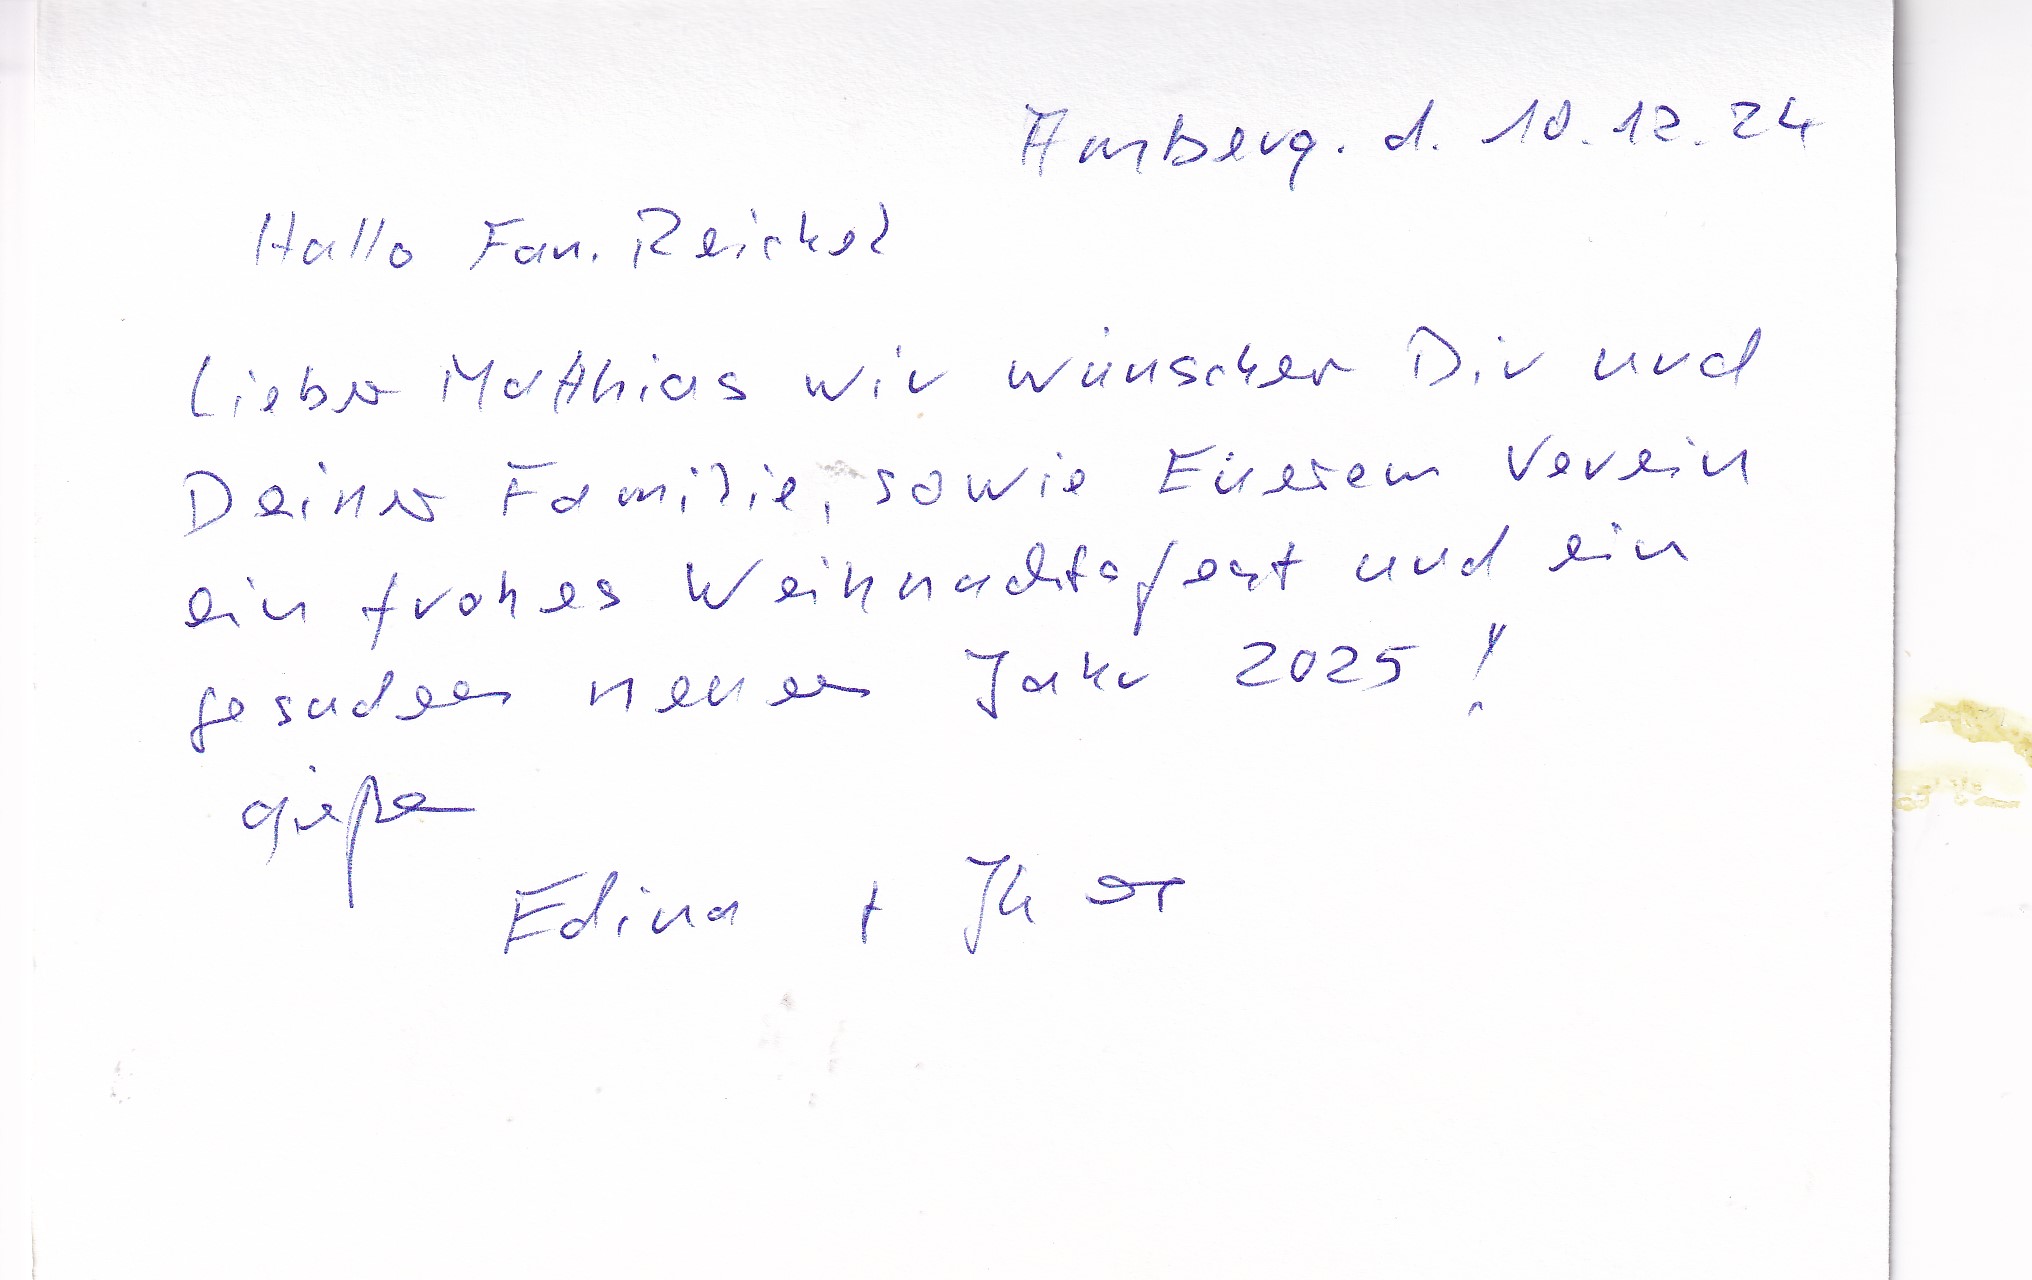 Amberg. d. 10.12.24
Hallo Fam. Reichel
Lieber Matthias wir wünschen Dir und
Deiner Familie, sowie Eüerem Verein
ein frohes Weihnachtsfest und ein
gesudes neues Jahr 2025!
Edina +